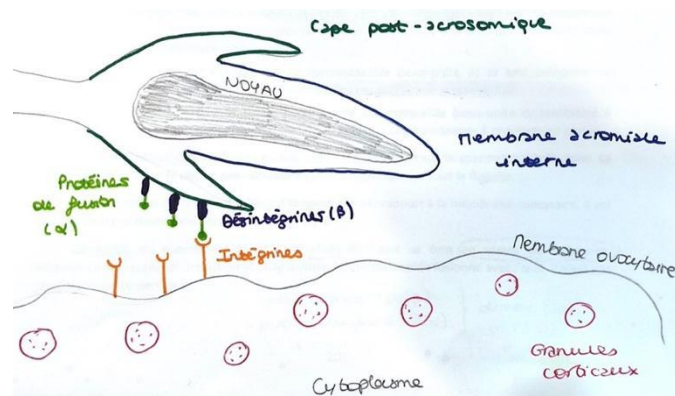 Cape post-acrosomique
NOYAU
Membrane acromiale
interne
Protéines
de fusion
(α)
Désintégrines (β)
Intégrines
Membrane ovocytaire
Granules
corticaux
Cytoplasme